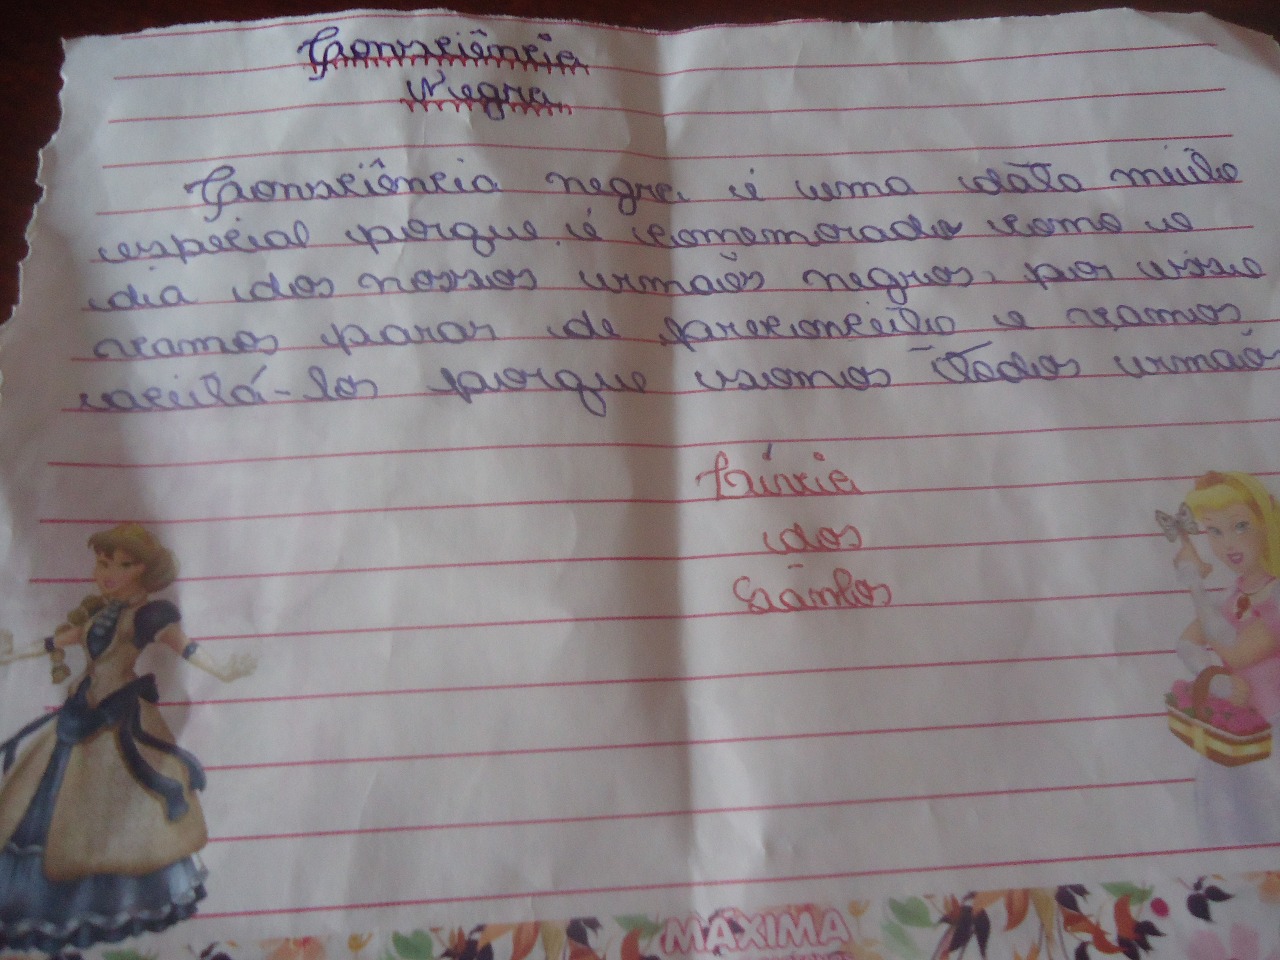 Consciência
Negra
Consciência negra é uma data muito
especial porque é comemorada como o
dia dos nossos irmãos negros, por isso
vamos parar de preconceito e vamos
aceitá-los porque somos todos irmãos
Lúcia
dos
Santos
MAXIMA